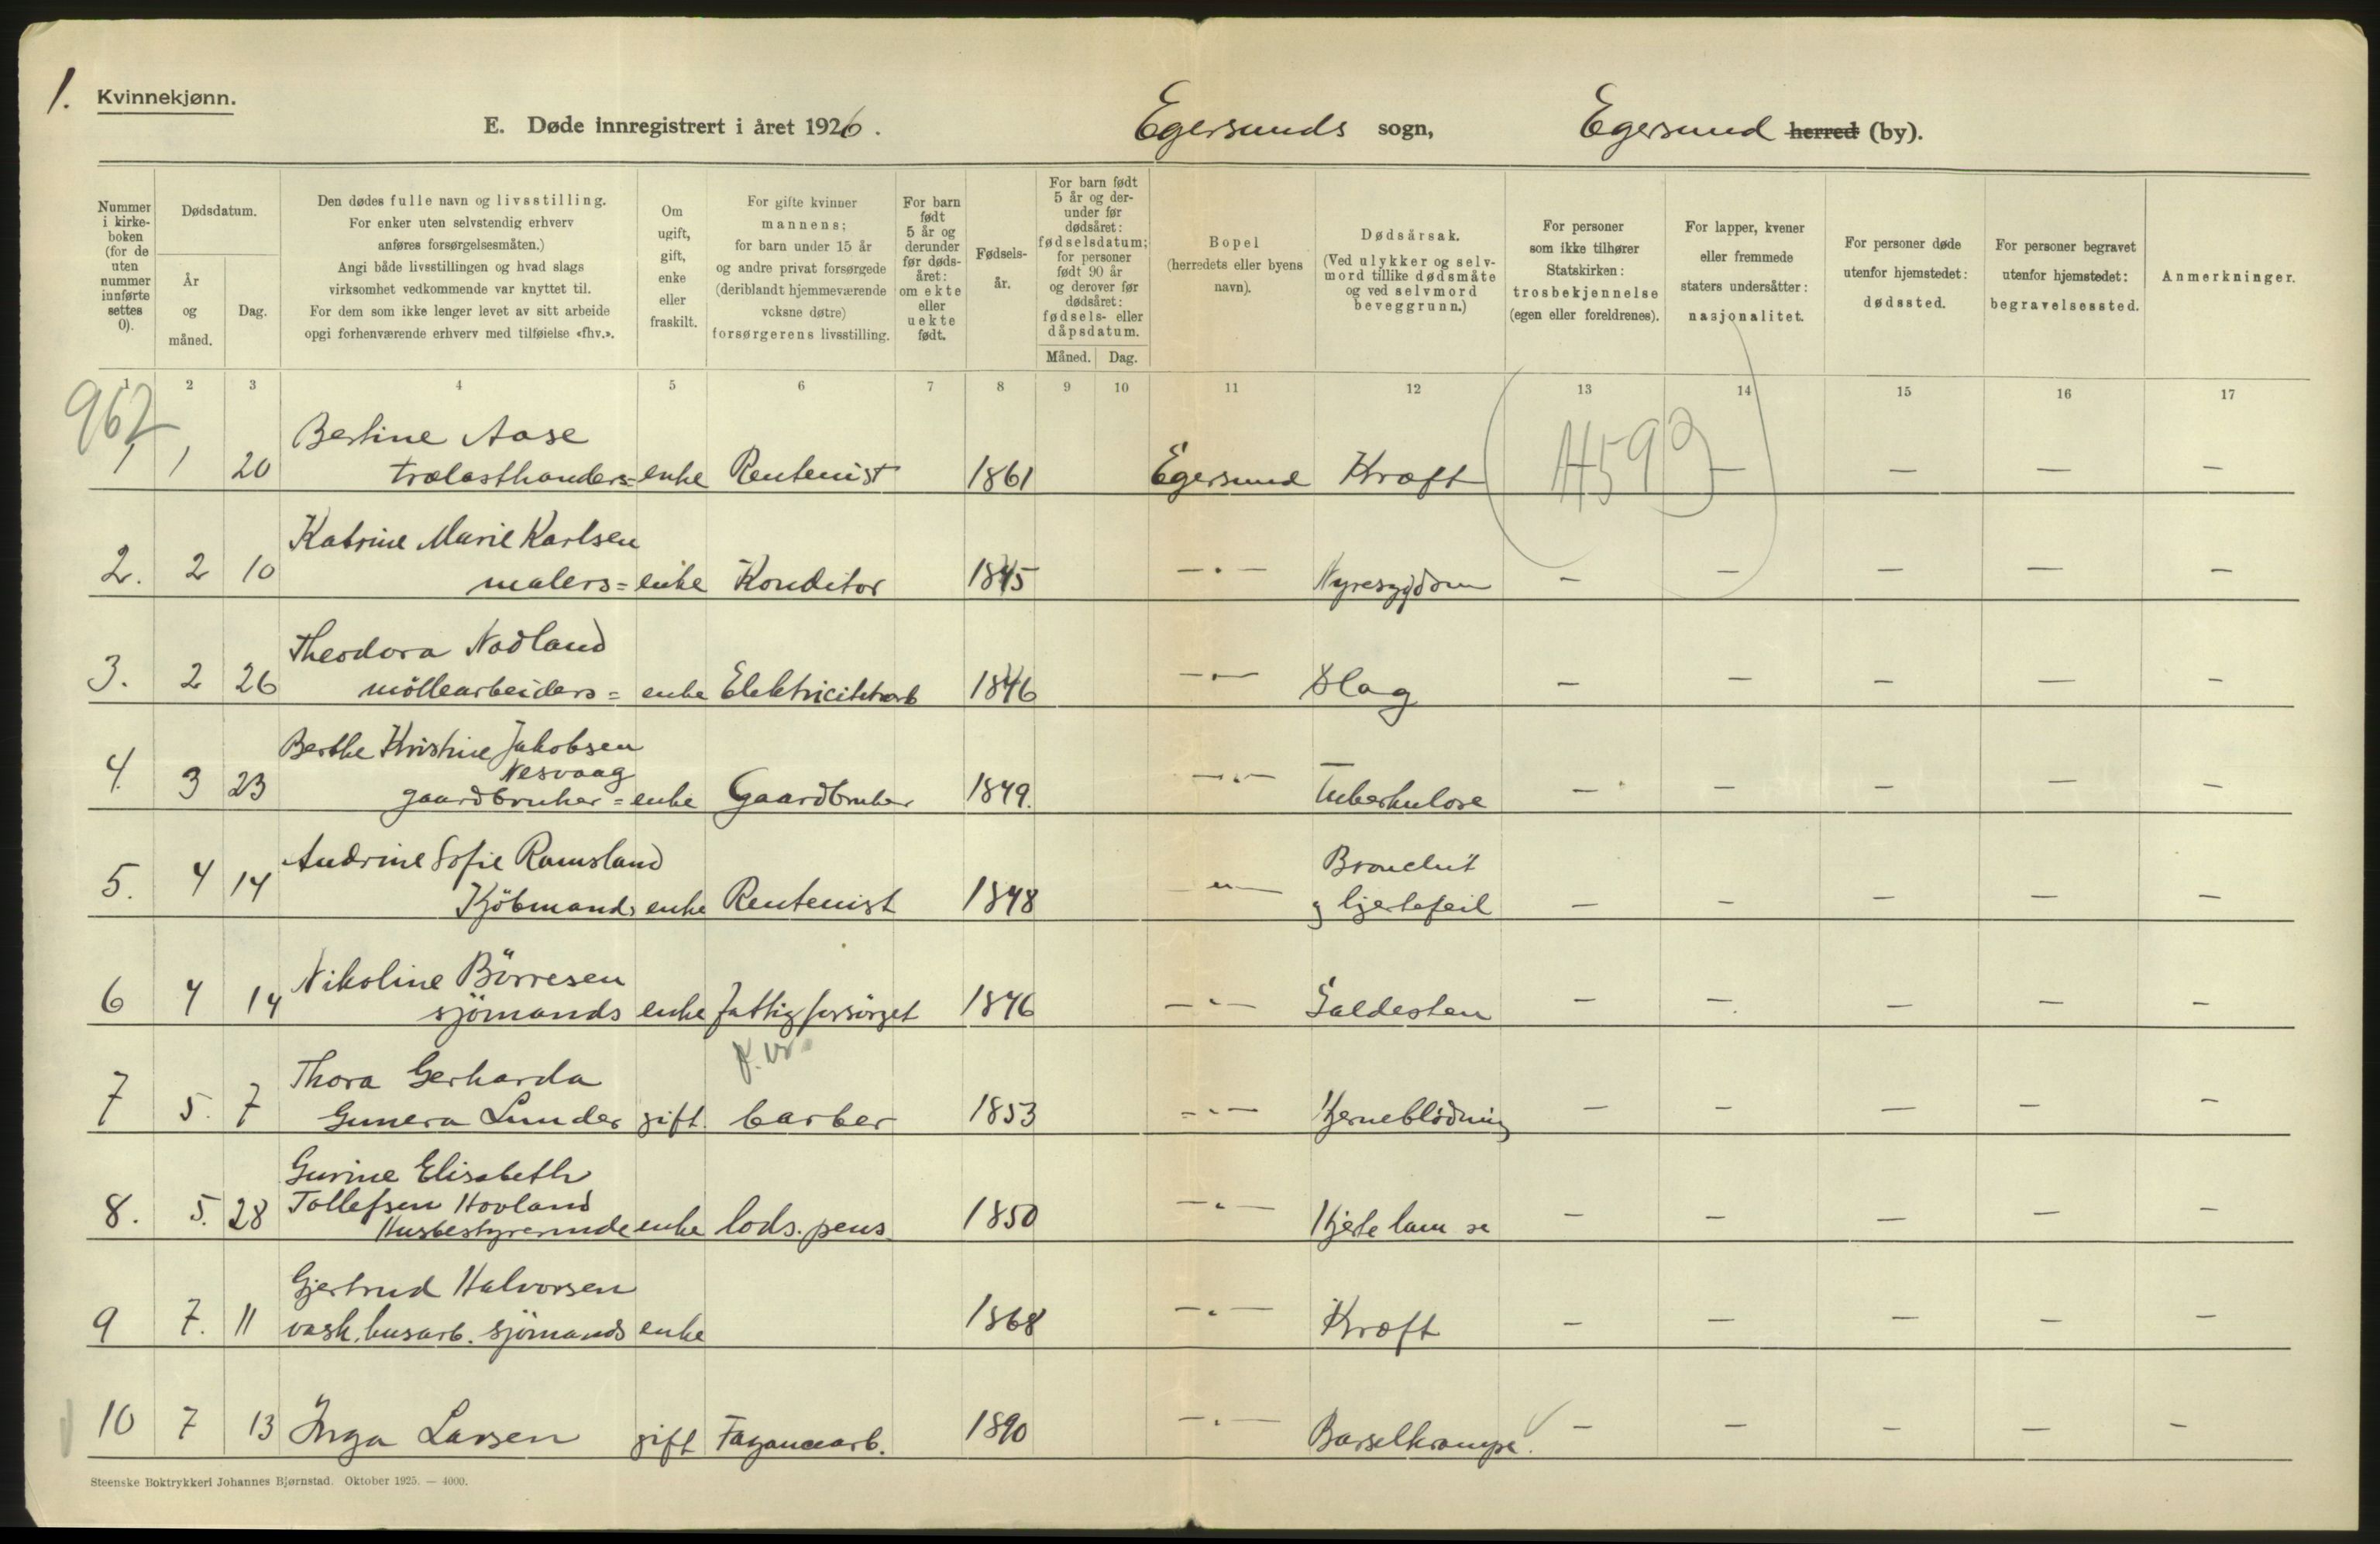 1. Kvinnekjønn.
E. Døde innregistrert i året 1926. Egersunds sogn, Egersund herred (by).
Nummer i kirkeboken (for de uten nummer innførte settes 0).
Dødsdatum.
År og måned.
Dag.
Den dødes fulle navn og livsstilling.
For enker uten selvstendig erhverv
anføres forsørgelsesmåten.)
Angi både livsstillingen og hvad slags
virksomhet vedkommende var knyttet til.
For dem som ikke lenger levet av sitt arbeide
opgi forhenværende erhverv med tilføielse «fhv.».
Om ugift, gift, enke eller fraskilt.
For gifte kvinner
mannens;
for barn under 15 år
og andre privat forsørgede
(deriblandt hjemmeværende
voksne døtre)
forsørgerens livsstilling.
For barn født 5 år og derunder før dødsåret: om ekte eller uekte født.
Fødselsår.
For barn født 5 år og derunder før dødsåret: fødselsdatum; for personer født 90 år og derover før dødsåret: fødsels- eller dåpsdatum.
Måned. Dag.
Bopel
(herredets eller byens
navn).
Dødsårsak.
(Ved ulykker og selvmord tillike dødsmåte
og ved selvmord
beveggrunn.)
For personer
som ikke tilhører
Statskirken:
trosbekjennelse
(egen eller foreldrenes).
For lapper, kvener
eller fremmede
staters undersåtter:
nasjonalitet.
For personer døde
utenfor hjemstedet:
dødssted.
For personer begravet
utenfor hjemstedet:
begravelsessted.
Anmerkninger.
1 2 3 4 5 6 7 8 9 10 11 12 13 14 15 16 17
962
Bertine Aase
1 1 20 trælasthandlers= enke Rentenist 1861 Egersund Kræft — — — —
Katrine Marie Karlsen
2. 2 10 malers= enke Konditor 1845 —„— Nyresygdom — — — — —
Theodora Nodland
3. 2 26 möllearbeiders= enke 1846 —„— Slag — — — — —
Berthe Kristine Jakobsen
Nesvaag
4. 3 23 gaardbruker= enke Gaardbruker 1849. —„— Tuberkulose — — — — —
Andrine Sofie Ramsland Bronchit
5. 4 14 Kjöbmands enke Rentenist 1848 —„— g hjertefeil — — — — —
Nikoline Börresen
6 4 14 sjömands enke fattigforsörget 1846 —„— Galdesten — — — — —
Thora Gerharda
7 5. 7 Gunera Lunder gift. barber 1853 —„— Hjerneblödning — — — — —
Gurine Elisabeth
Tollefsen Hovland
8. 5. 28 Husbestyrerinde enke lods. pens. 1850 —„— — — — — —
Gjertrud Halvorsen
9 7. 11 vask. husarb. sjömands enke 1868 —„— Kræft — — — — —
10 7 13 Inga Larsen gift Fayancearb. 1890 —„— Barselkrampe. — — — — —
Steenske Boktrykkeri Johannes Bjørnstad. Oktober 1925. — 4000.